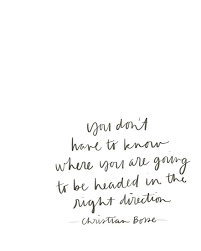 you don't
have to know
where you are going
to be headed in the
right direction
- Christian Bosse -